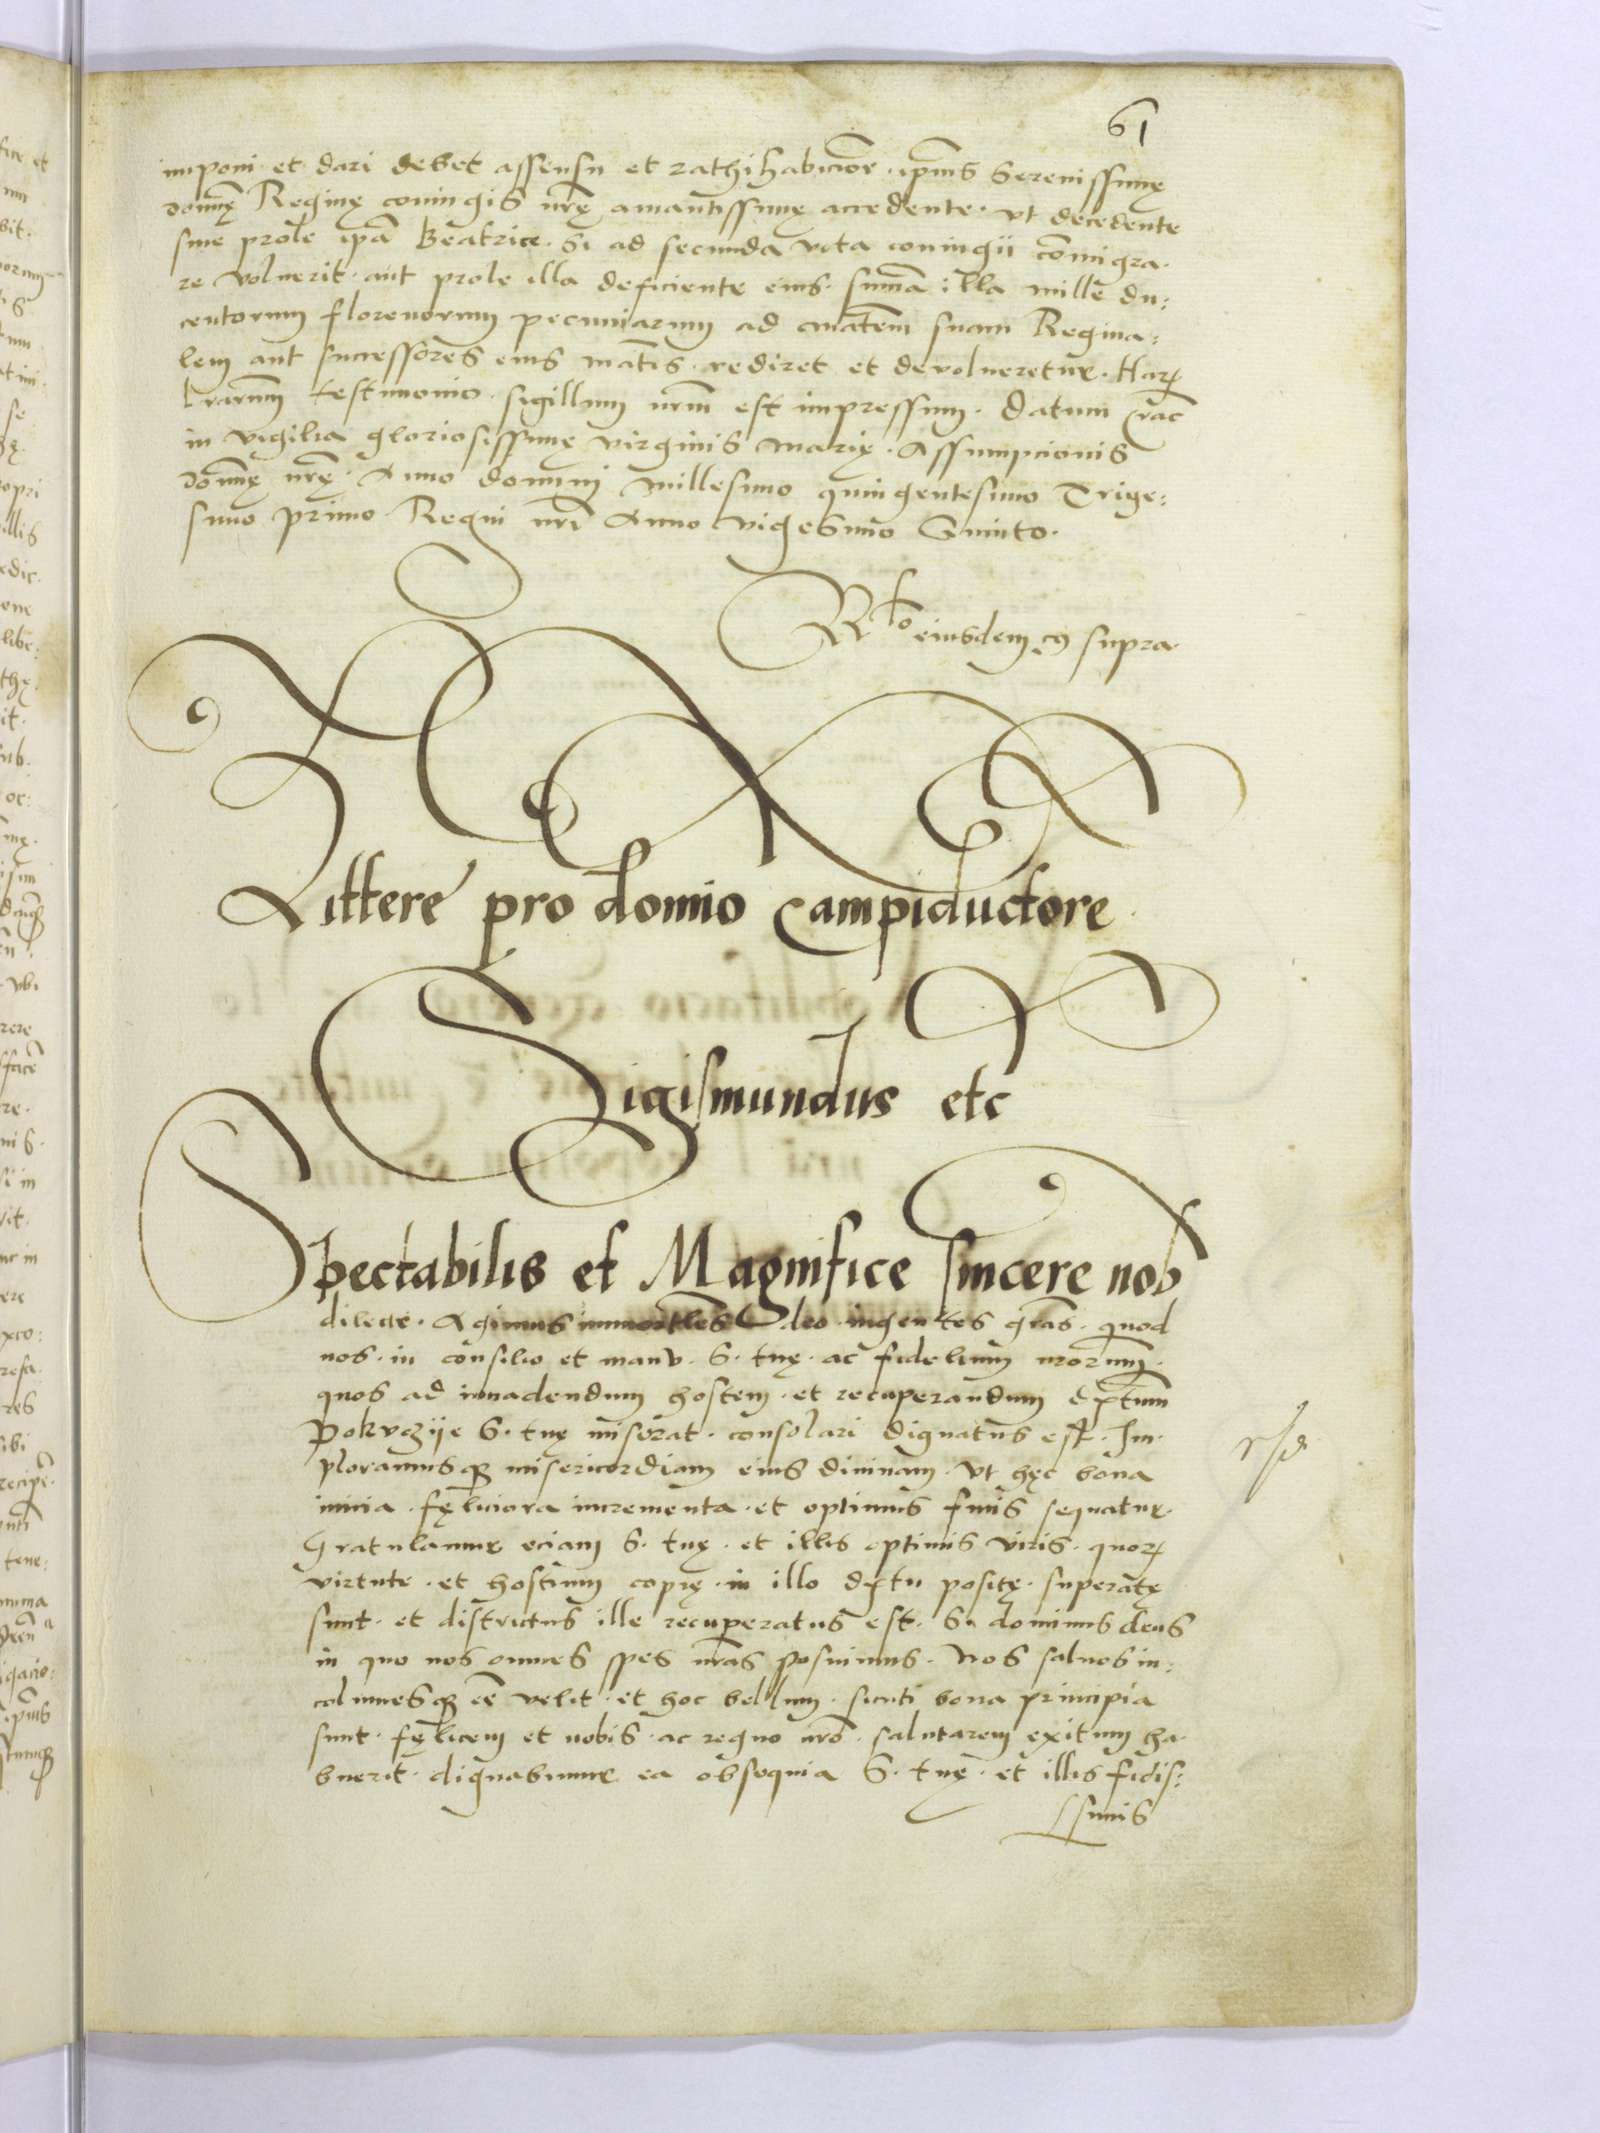 61
imponi et dari debet assensu et rathihabicioē ip̄ius Serenissimę
domīę Reginę coniugis n̄rę amantissimę accedente. vt decedente
sine prole ip̄a Beatrice. Si ad secunda vota coniugii com̄igra-
re voluerit. aut prole illa deficiente eius. sum̄a illa mille du:
centorum florenorum pecuniarum ad mātem suam Regina:
lem aut successores eius mātis. rediret et deuolueretur. Harꝝ
l̄rarum testimonio. sigillum n̄rm est impressum. Datum Crac̄
in vigilia gloriosissimę virginis Marię. Assumpcionis
domīę n̄rę. Anno domini Millesimo quingentesimo Trige:
simo primo Regni n̄ri Anno vigesimo Quinto.
Rᵗᵒ eiusdem cꝰ supra.
Littere pro domīo Campiductore
Sigismundus etc
Spectabilis et Magnifice sincere nob̄
dilecte. Agimus immortales deo ingentes gr̄as. quod
nos. in consilio et manu. S. tuę. ac fidelium n̄rorum.
quos ad inuadendum hostem. et recuperandum d̄ctum
Pokuczije S. tuę miserat. consolari dignatus est. Im-
ploramusqꝫ misericordiam eius diuinam. vt hęc bona
inicia. fęliciora incrementa. et optimus finis sequatur.
Gratulamur eciam S. tuę. et illis optimis viris. quorꝝ
virtute. et hostium copię. in illo d̄ctu positę. superatę
sunt. et districtus ille recuperatus est. Si dominus deus
in quo nos omnes spes n̄ras posuimus. Nos saluos in:
columesqꝫ eē velit. et hoc bellum. sicuti bona principia
sunt. fęlicem et nobis. ac regno n̄ro. salutarem exitum ha-
buerit. dignabimur ea obsequia S. tuę. et illis fidis:
simis